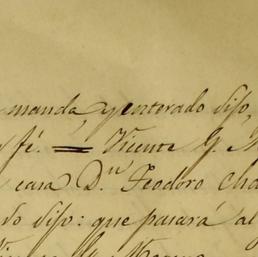 manda, y enterado dijo,
fé. = Vicente G.
casa D.n Teodoro Cha
do dijo: que pasará al